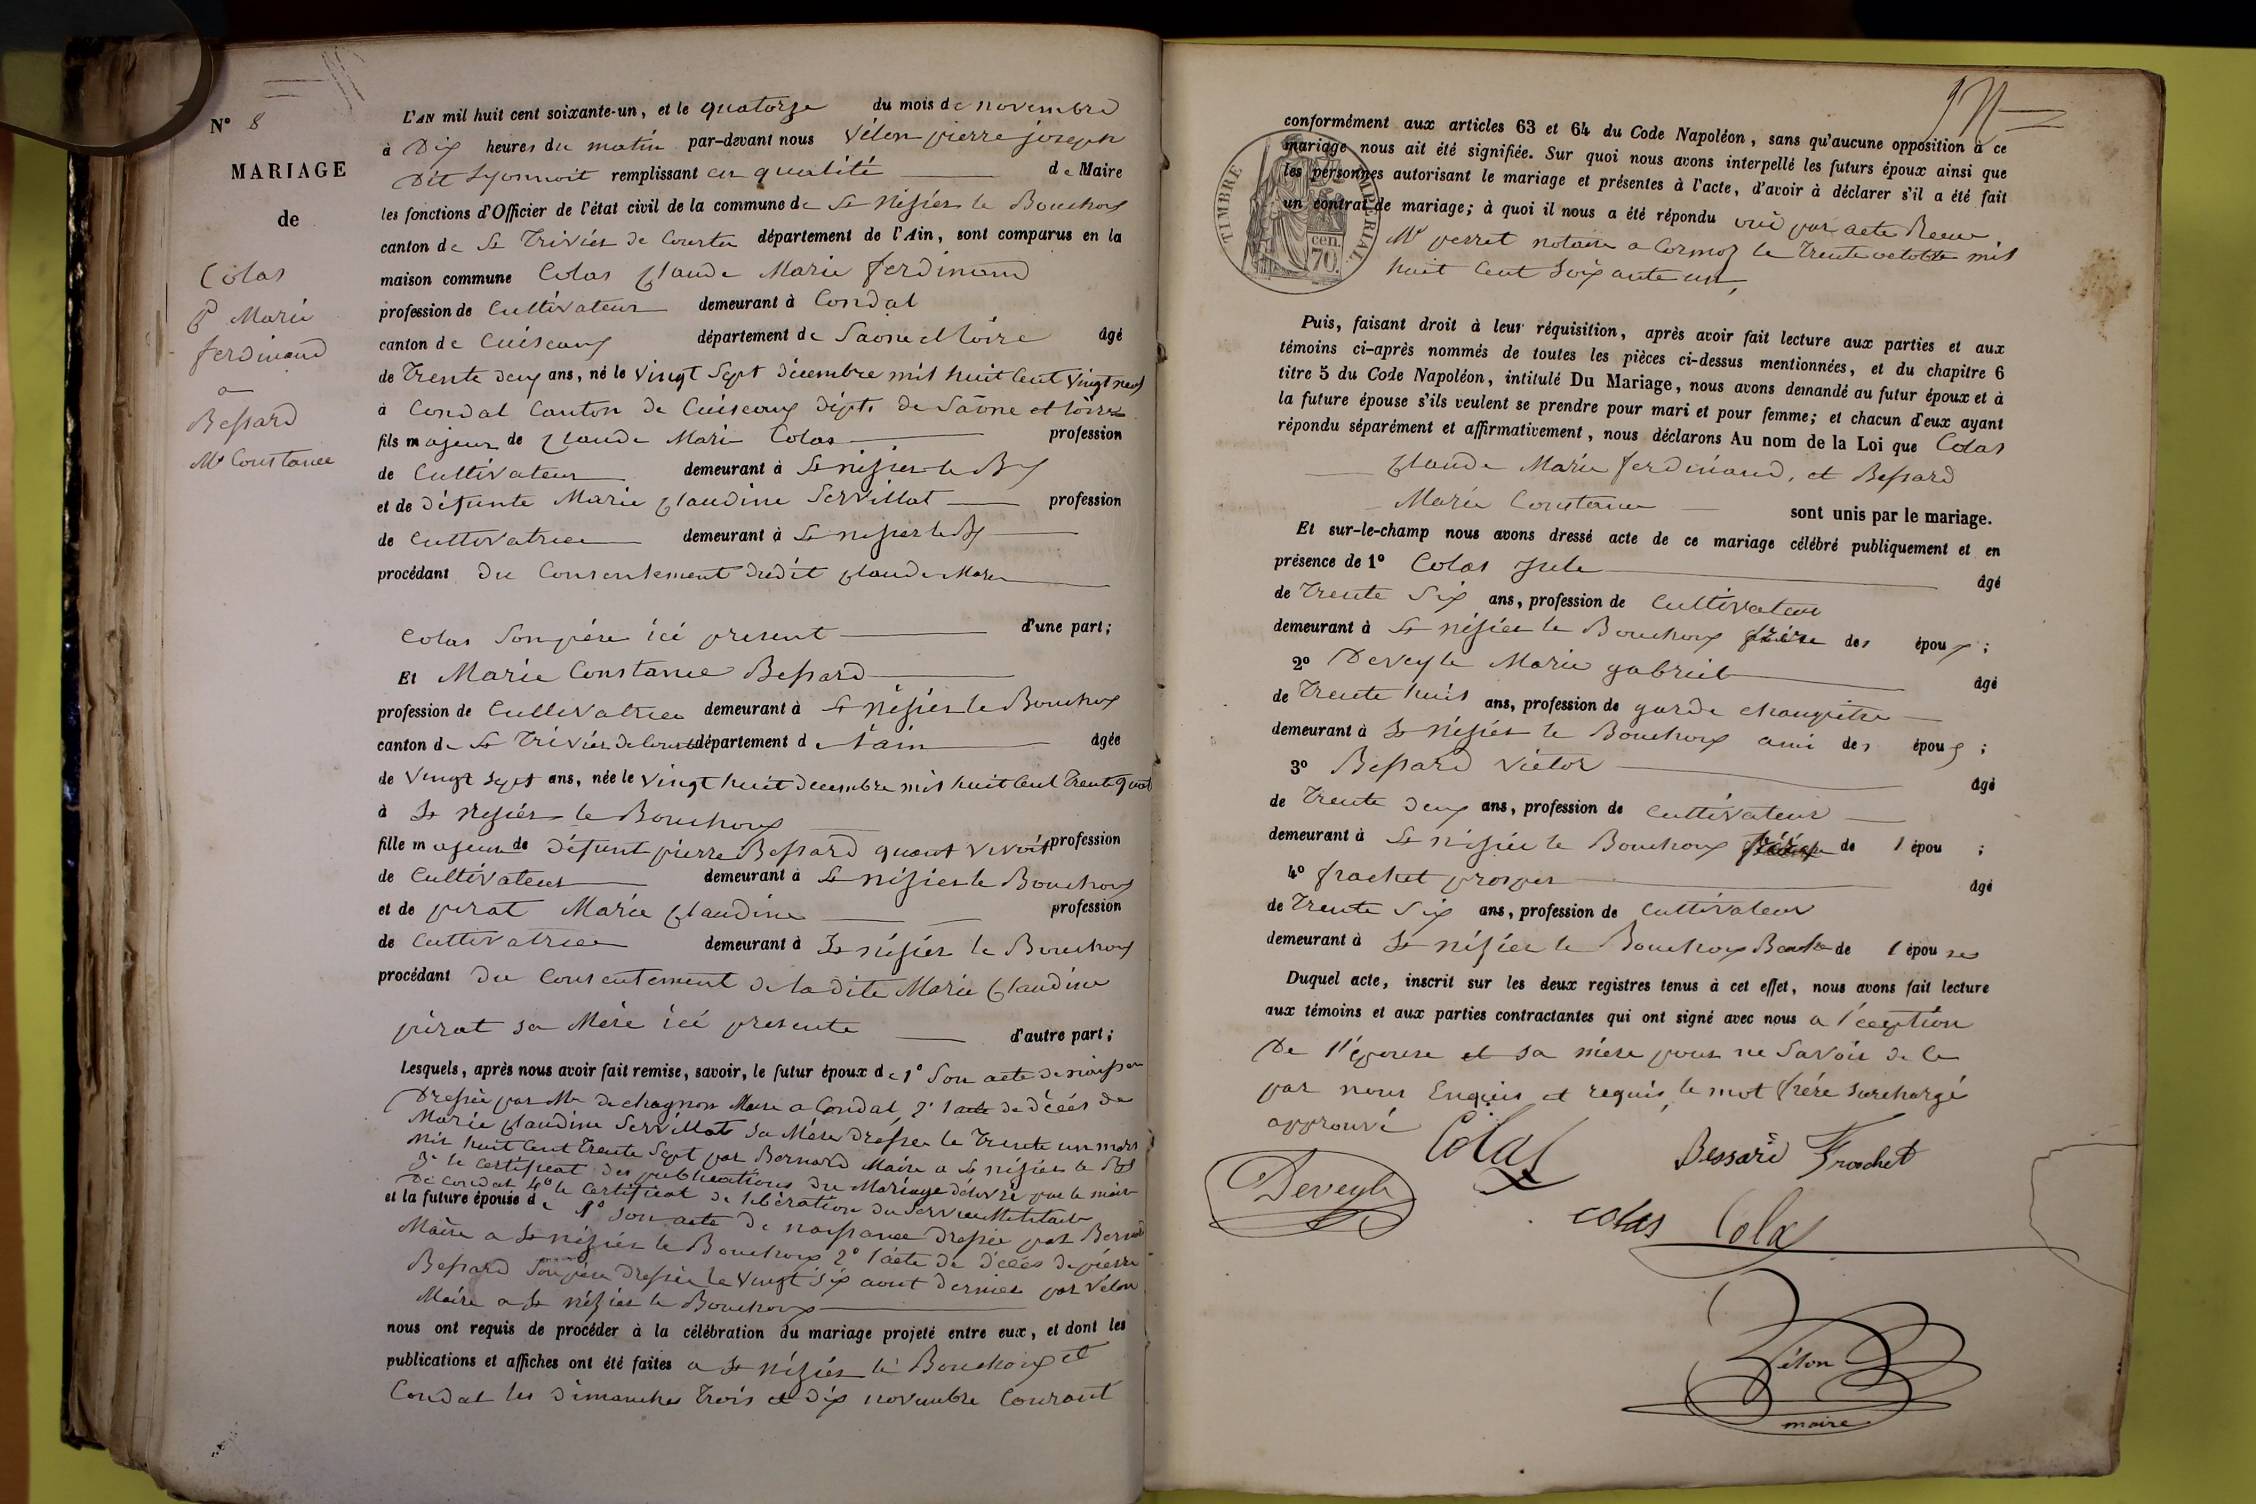 N° 8
MARIAGE
de
Colas
Cde Marie
ferdinand
a
Bessard
Mie Constance
L'AN mil huit cent soixante-un, et le quatorze du mois de novembre
à Dix heures du matin par-devant nous Vélon pierre joseph
Dit Lyonnoit remplissant en qualité de Maire
les fonctions d'Officier de l'état civil de la commune de St Nisier le Bouchoux
canton de St Trivier de Courtes département de l'Ain, sont comparus en la
maison commune Colas Claude Marie ferdinand
profession de Cultivateur demeurant à Condal
canton de Cuiseaux département de Saone et Loire âgé
de Trente deux ans, né le vingt Sept décembre mil huit Cent vingt neuf
à Condal Canton de Cuiseaux dépt. de Saône et Loire
fils majeur de Claude Marie Colas profession
de Cultivateur demeurant à St nisier le Bx
et de défunte Marie Claudine Servillat profession
de Cultivatrice demeurant à St nisier le Bx
procédant du Consentement dudit Claude Marie
Colas Son père ici present d'une part;
Et Marie Constance Bessard
profession de Cultivatrice demeurant à St Nisier le Bouchoux
canton de St Trivier de Courtes département de l'ain âgée
de vingt sept ans, née le vingt huit decembre mil huit Cent Trente quat
à St Nisier le Bouchoux
fille majeure de défunt pierre Bessard quant vivoit profession
de Cultivateur demeurant à St nisier le Bouchoux
et de pirat Marie Claudine profession
de Cultivatrice demeurant à St nisier le Bouchoux
procédant du Consentement de la dite Marie Claudine
pirat sa Mère ici presente d'autre part;
Lesquels, après nous avoir fait remise, savoir, le futur époux de 1° Son acte de naissan
Dressée par Mr Dechagnon Maire a Condal 2° l'acte de décés de
Marie Claudine Servillat Sa Mère dressée le Trente un mars
mil huit Cent Trente Sept par Bernard Maire a St nisier le Bx
3° le certificat des publications du Mariage délivré par le maire
De Condal 4° le Certificat de libération du Service Militaire
et la future épouse de 1° Son acte de naissance dressée par Bernard
Maire a St nizier le Bouchoux 2° l'acte de décés de pierre
Bessard Son père dressée le vingt Six aout dernier par Vélon
Maire a St nizier le Bouchoux
nous ont requis de procéder à la célébration du mariage projeté entre eux, et dont les
publications et affiches ont été faites a St nizier le Bouchoux et
Condal les dimanches Trois et dix novembre Courant
TIMBRE IMPERIAL
70 cen.
conformément aux articles 63 et 64 du Code Napoléon, sans qu'aucune opposition à ce
mariage nous ait été signifiée. Sur quoi nous avons interpellé les futurs époux ainsi que
les personnes autorisant le mariage et présentes à l'acte, d'avoir à déclarer s'il a été fait
un contrat de mariage; à quoi il nous a été répondu oui par acte Recu
Me perret notaire a Cormoz le Trente octobre mil
huit Cent Soixante un,
Puis, faisant droit à leur réquisition, après avoir fait lecture aux parties et aux
témoins ci-après nommés de toutes les pièces ci-dessus mentionnées, et du chapitre 6
titre 5 du Code Napoléon, intitulé Du Mariage, nous avons demandé au futur époux et à
la future épouse s'ils veulent se prendre pour mari et pour femme; et chacun d'eux ayant
répondu séparément et affirmativement, nous déclarons Au nom de la Loi que Colas
Claude Marie ferdinand, et Bessard
Marie Constance sont unis par le mariage.
Et sur-le-champ nous avons dressé acte de ce mariage célébré publiquement et en
présence de 1° Colas Jule âgé
de Trente Six ans, profession de Cultivateur
demeurant à St nisier le Bouchoux frère de l époux;
2° Deveyle Marie gabriel âgé
de Trente huit ans, profession de garde champêtre
demeurant à St Nisier le Bouchoux ami de l époux;
3° Bessard Victor âgé
de Trente deux ans, profession de Cultivateur
demeurant à St nisier le Bouchoux frère de l épou;
4° frachet prosper âgé
de Trente Six ans, profession de Cultivateur
demeurant à St nisier le Bouchoux de l épouse
Duquel acte, inscrit sur les deux registres tenus à cet effet, nous avons fait lecture
aux témoins et aux parties contractantes qui ont signé avec nous a l'ception
De l'épouse et sa mère pour ne Savoir de ce
par nous Enquis et requis, le mot frère surchargé
approuvé
Colas Bessard Frachet
Deveyle
colas Colas
Vélon
maire